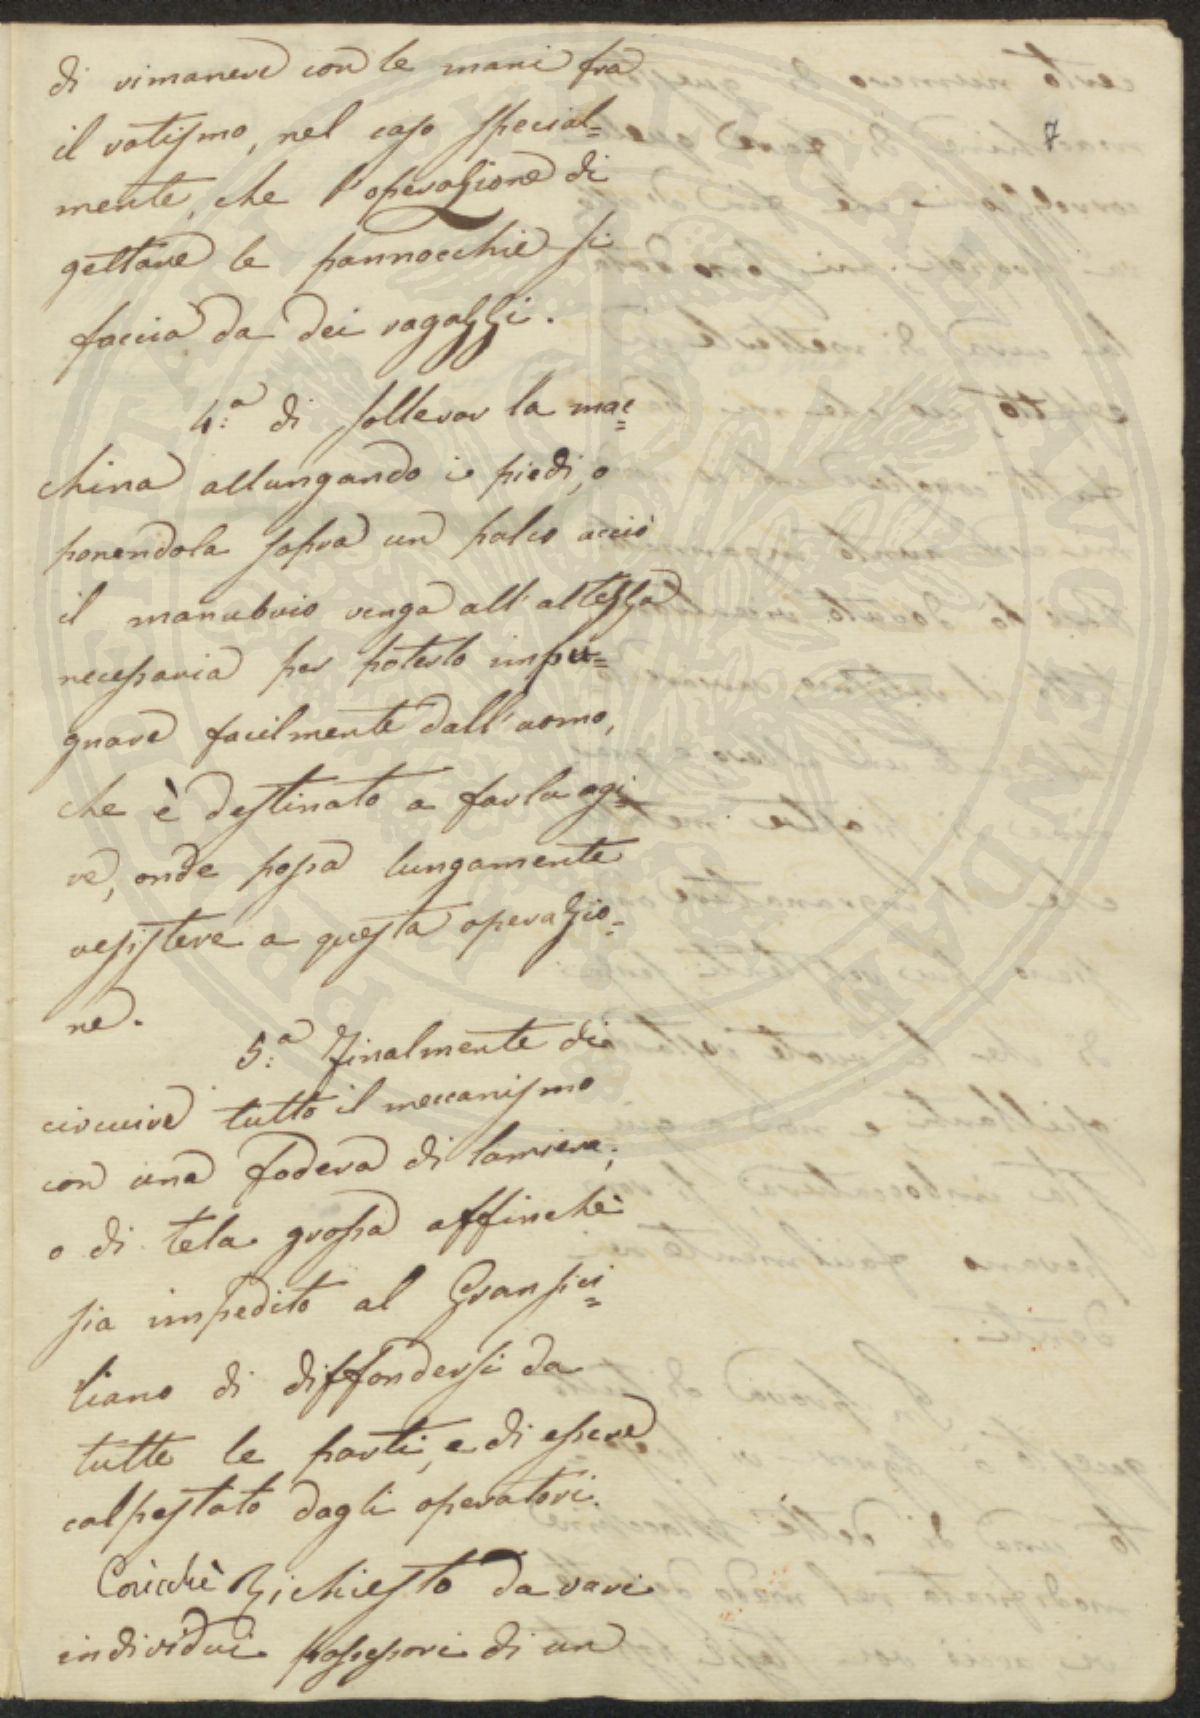 di rimanere con le mani fra
il rotismo, nel caso special=
mente, che l'operazione di
gettare le pannocchie si
faccia da dei ragazzi.
4.a di sollevar la mac=
china allungando i piedi, o
ponendola sopra un palco acciò
il manubrio venga all'altezza
necessaria per poterlo impu=
gnare facilmente dall'uomo,
che è destinato a farla agi=
re, onde possa lungamente
resistere a questa operazio=
ne.
5.a Finalmente di
circuire tutto il meccanismo
con una fodera di lamiera,
o di tela grossa affinchè
sia impedito al Gransici=
liano di diffondersi da
tutte le parti, e di essere
calpestato dagli operatori.
Richiesto da varj
individui possessori di un
7